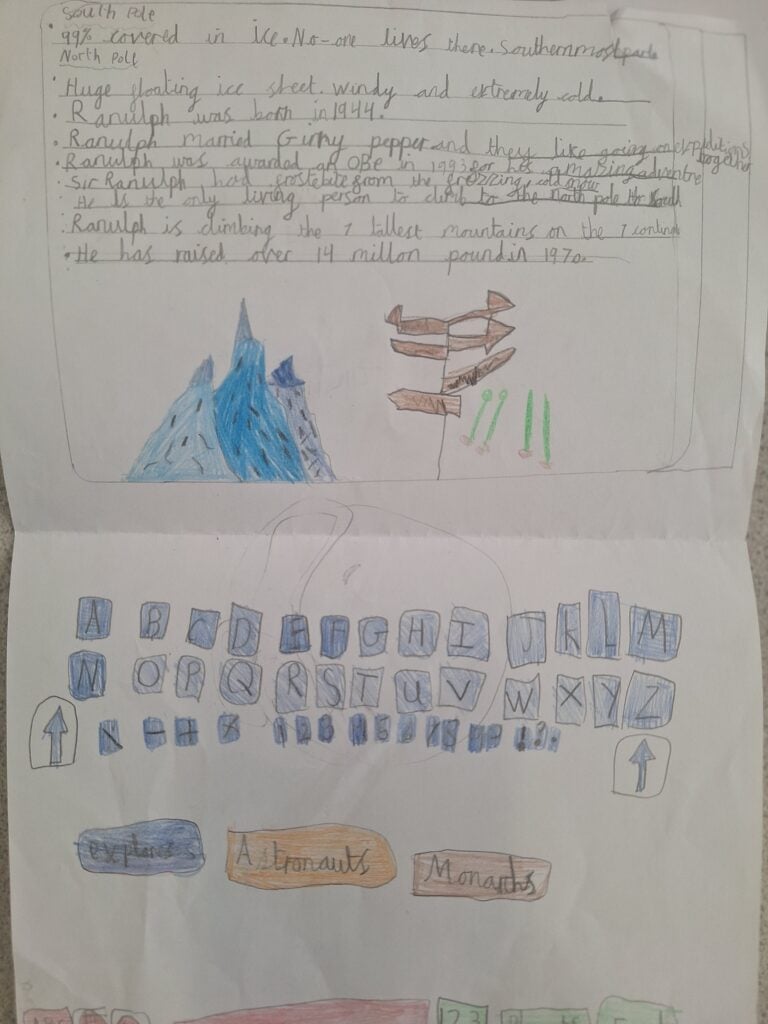 South Pole
• 99% covered in ice. No-one lives there. Southernmost
North Pole
• Huge floating ice sheet. windy and extremely cold.
• Ranulph was born in 1944.
• Ranulph married Ginny pepper and they like going on expeditions together
• Ranulph was awarded an OBE in 1993 for his amazing adventre
Sir Ranulph had frostebite from the cold snow
He is the only living person to climb to the north pole
Ranulph is climbing the 7 tallest mountains on the 7
• He has raised over 14 millon pound in 1970.
A B C D E F G H I J K L M
N O P Q R S T U V W X Y Z
\ - + x 1 2 3
Astronauts
Monarchs
ABC
123